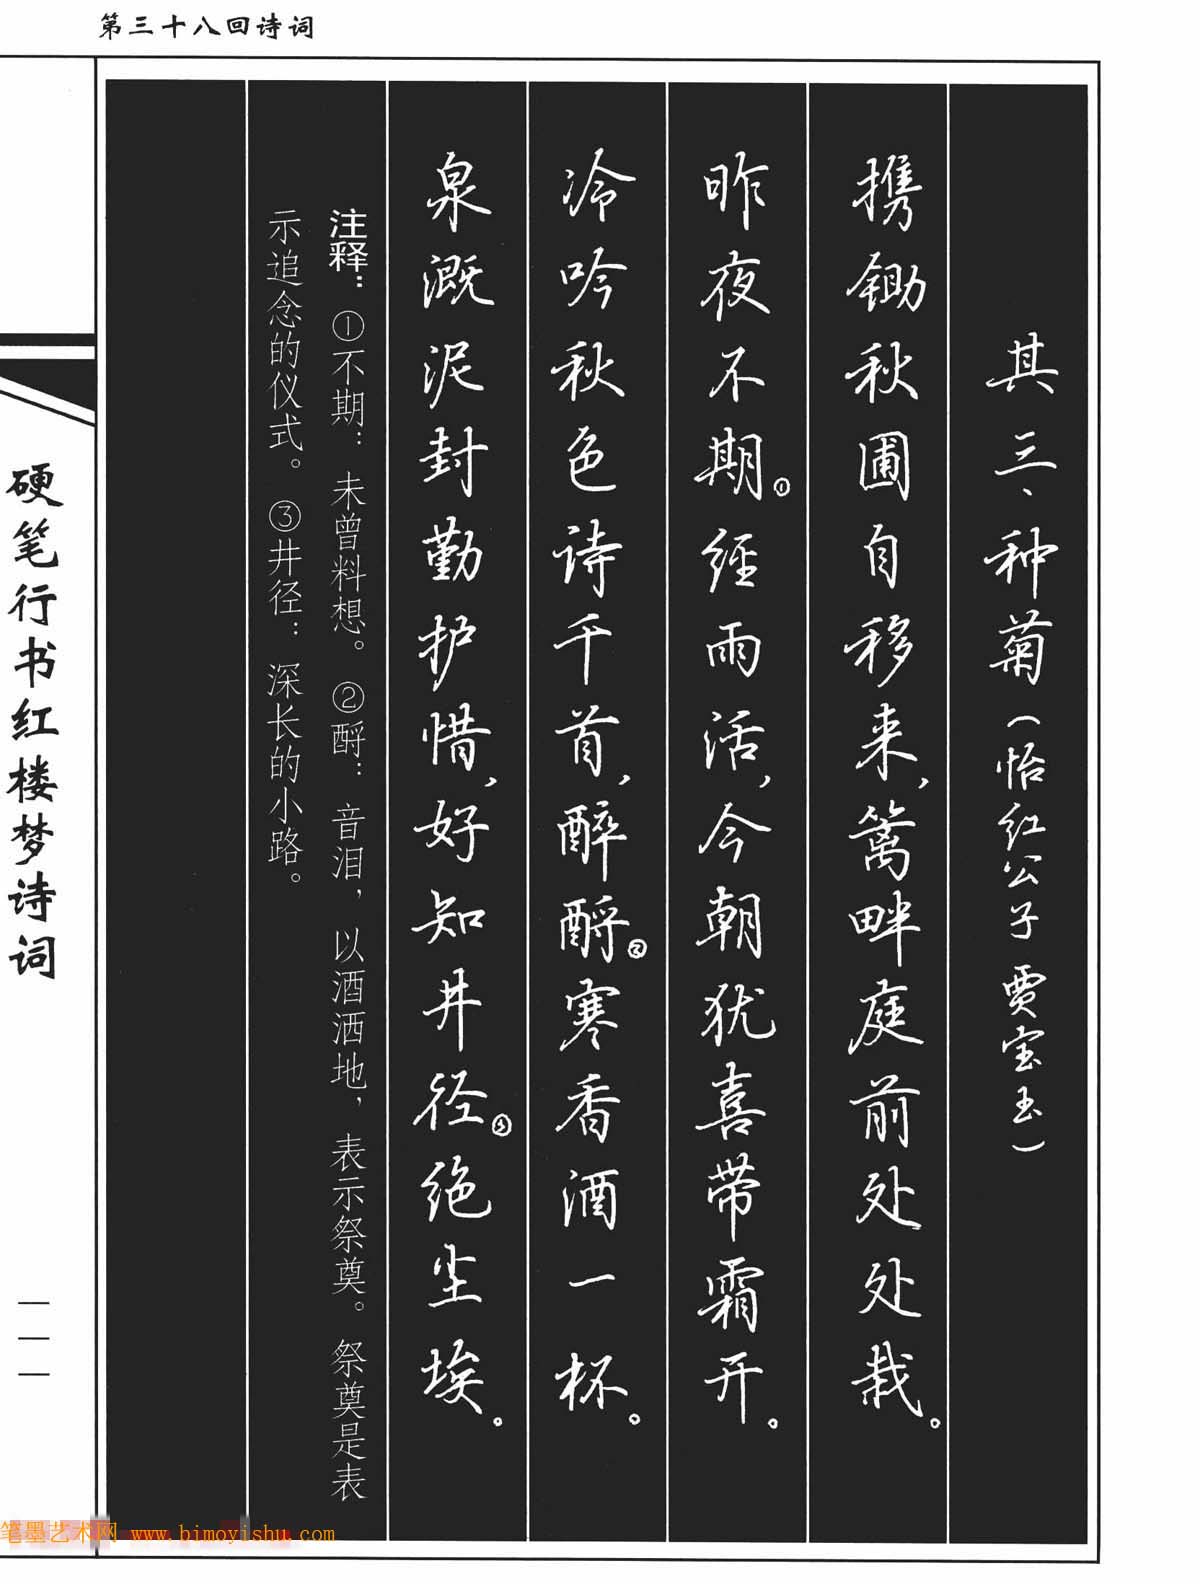 第三十八回诗词
其三、种菊（怡红公子 贾宝玉）
携锄秋圃自移来，篱畔庭前处处栽。
昨夜不期①经雨活，今朝犹喜带霜开。
冷吟秋色诗千首，醉酹②寒香酒一杯。
泉溉泥封勤护惜，好知井径③绝尘埃。
注释：①不期：未曾料想。②酹：音泪，以酒洒地，表示祭奠。祭奠是表
示追念的仪式。③井径：深长的小路。
硬笔行书红楼梦诗词
一一一
笔墨艺术网 www.bimoyishu.com